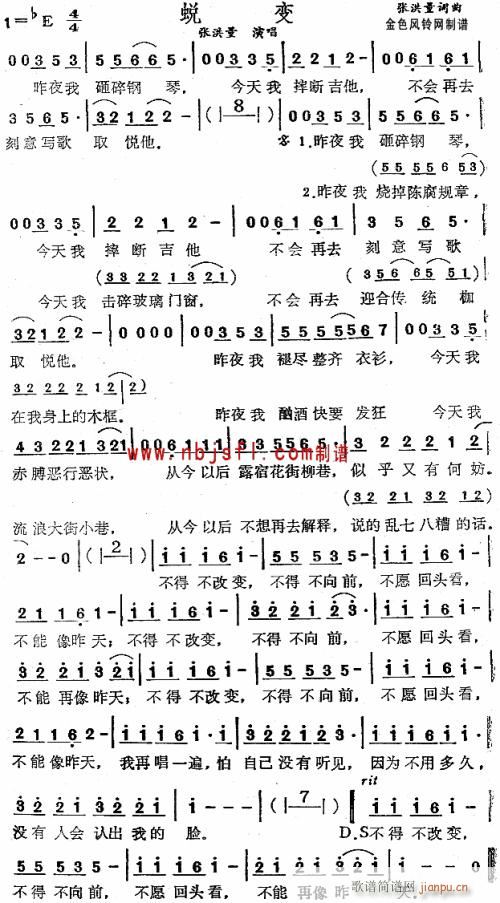 蜕 变
1=♭E 4/4
张洪量词曲
张洪量 演唱
金色风铃网制谱
0 0 3 5 3 | 5 5 6 5 5 · | 0 0 3 3 5 | 2 2 1 2 - | 0 0 6 1 6 1 |
昨夜我 砸碎钢 琴， 今天我 摔断吉他， 不会再去
3 5 6 5 · | 3 2 1 2 2 - | (|— 8 —|) | 0 0 3 5 3 | 5 5 6 5 5 · |
刻意写歌 取 悦他。 1.昨夜我 砸碎钢 琴，
(5 5 5 5 6 5 3)
2.昨夜我 烧掉陈腐规章，
0 0 3 3 5 | 2 2 1 2 - | 0 0 6 1 6 1 | 3 5 6 5 · |
今天我 摔 断吉他 不会再去 刻 意写歌
(3 3 2 2 1 3 2 1) (3 5 6 5 6 5 5 1)
今天我 击碎玻璃门窗， 不会再去 迎合传 统 枷
3 2 1 2 2 - | 0 0 3 5 3 | 5 5 5 5 5 6 7 | 0 0 3 3 5 |
取 悦他。 昨夜我 褪尽整齐 衣衫， 今天我
3 2 2 2 2 1 2)
在我身上的木框。 昨夜我 酗酒快要 发狂 今天我
4 3 2 2 1 1 3 2 1 | 0 0 6 1 1 1 | 3 3 5 6 5 5 | 3 2 2 1 2 - |
www.nbjsfl.com制谱
赤膊恶行恶状， 从今以后 露宿花街柳巷， 似 乎又有何妨。
(3 2 2 1 3 2 1 2)
流浪大街小巷， 从今以后 不想再去解释， 说的乱七八糟的话。
2 - - 0 | (|— 2 —|) | i i i 6 i - | 5 5 5 3 5 - | i i i 6 i · |
不得 不改变， 不得 不向前， 不愿 回头看，
2 1 1 6 1 - | i i i 6 i - | 3 2 2 1 2 - | i i i 6 i · |
不能 像昨天； 不得 不改变， 不得 不向前， 不愿 回头看，
3 2 2 1 3 2 1 | i i i 6 i - | 5 5 5 3 5 - | i i i 6 i · |
不能 再像昨天； 不得 不改变， 不得 不向前， 不愿 回头看，
2 1 1 6 2 - | i i i 6 i · | i i i i 6 i · | 3 2 2 2 1 2 · |
不能 像昨天， 我再 唱一遍， 怕 自己没有听见， 因为 不用多久，
rit
3 2 2 1 2 1 | i - - - | (|— 7 —|) | i i i 6 i - |
没有人会 认出 我的 脸。 D.S不得 不改变，
5 5 5 3 5 - | i i i 6 i - | 2 1 1 2 2 1 | i - - - |
不得 不向前， 不愿 回头看， 不能 再像昨 天。
歌谱简谱网
jianpu.cn